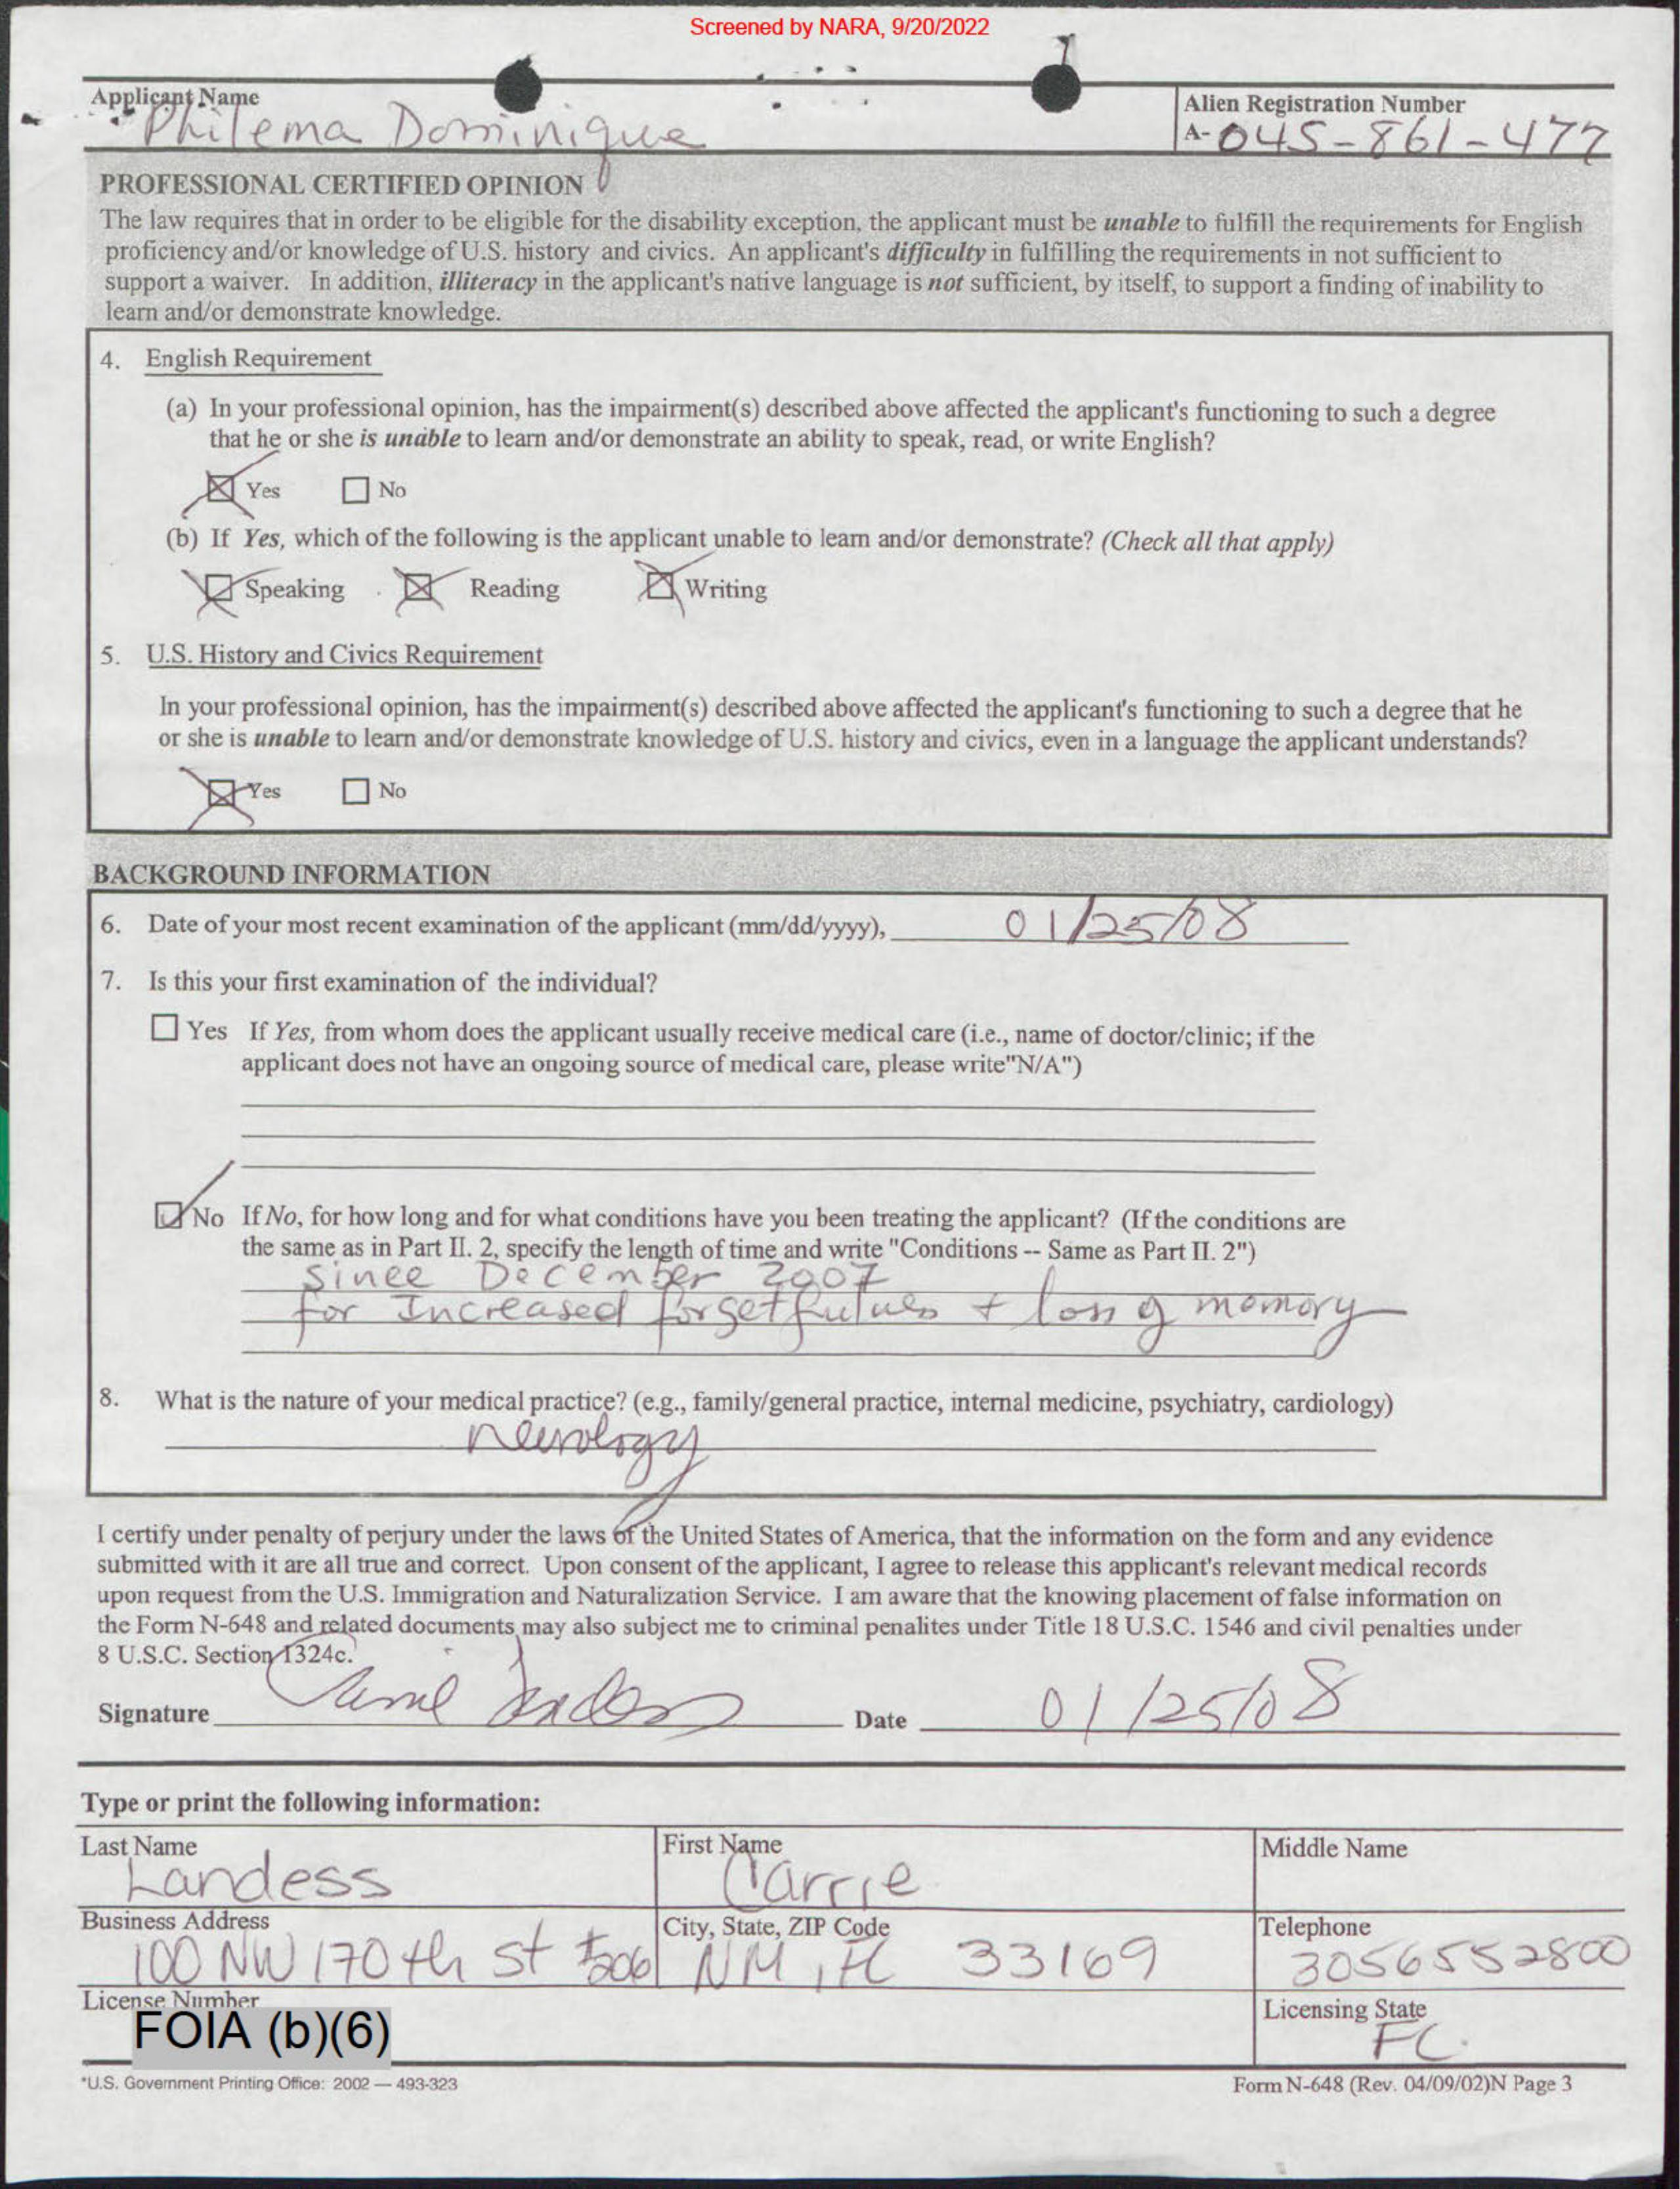 Screened by NARA, 9/20/2022
Applicant Name
Philema Dominique
Alien Registration Number
A- 045-861-477
PROFESSIONAL CERTIFIED OPINION
The law requires that in order to be eligible for the disability exception, the applicant must be unable to fulfill the requirements for English
proficiency and/or knowledge of U.S. history and civics. An applicant's difficulty in fulfilling the requirements in not sufficient to
support a waiver. In addition, illiteracy in the applicant's native language is not sufficient, by itself, to support a finding of inability to
learn and/or demonstrate knowledge.
4. English Requirement
(a) In your professional opinion, has the impairment(s) described above affected the applicant's functioning to such a degree
that he or she is unable to learn and/or demonstrate an ability to speak, read, or write English?
Yes No
(b) If Yes, which of the following is the applicant unable to learn and/or demonstrate? (Check all that apply)
Speaking Reading Writing
5. U.S. History and Civics Requirement
In your professional opinion, has the impairment(s) described above affected the applicant's functioning to such a degree that he
or she is unable to learn and/or demonstrate knowledge of U.S. history and civics, even in a language the applicant understands?
Yes No
BACKGROUND INFORMATION
6. Date of your most recent examination of the applicant (mm/dd/yyyy), 01/25/08
7. Is this your first examination of the individual?
Yes If Yes, from whom does the applicant usually receive medical care (i.e., name of doctor/clinic; if the
applicant does not have an ongoing source of medical care, please write"N/A")
No If No, for how long and for what conditions have you been treating the applicant? (If the conditions are
the same as in Part II. 2, specify the length of time and write "Conditions -- Same as Part II. 2")
since December 2007
for Increased forgetfulness + loss of memory
8. What is the nature of your medical practice? (e.g., family/general practice, internal medicine, psychiatry, cardiology)
neurology
I certify under penalty of perjury under the laws of the United States of America, that the information on the form and any evidence
submitted with it are all true and correct. Upon consent of the applicant, I agree to release this applicant's relevant medical records
upon request from the U.S. Immigration and Naturalization Service. I am aware that the knowing placement of false information on
the Form N-648 and related documents may also subject me to criminal penalites under Title 18 U.S.C. 1546 and civil penalties under
8 U.S.C. Section 1324c.
Signature Date 01/25/08
Type or print the following information:
Last Name First Name Middle Name
Landess Carrie
Business Address City, State, ZIP Code Telephone
100 NW 170th St #206 NM, FL 33169 3056552800
License Number Licensing State
FOIA (b)(6) FL.
*U.S. Government Printing Office: 2002 — 493-323 Form N-648 (Rev. 04/09/02)N Page 3